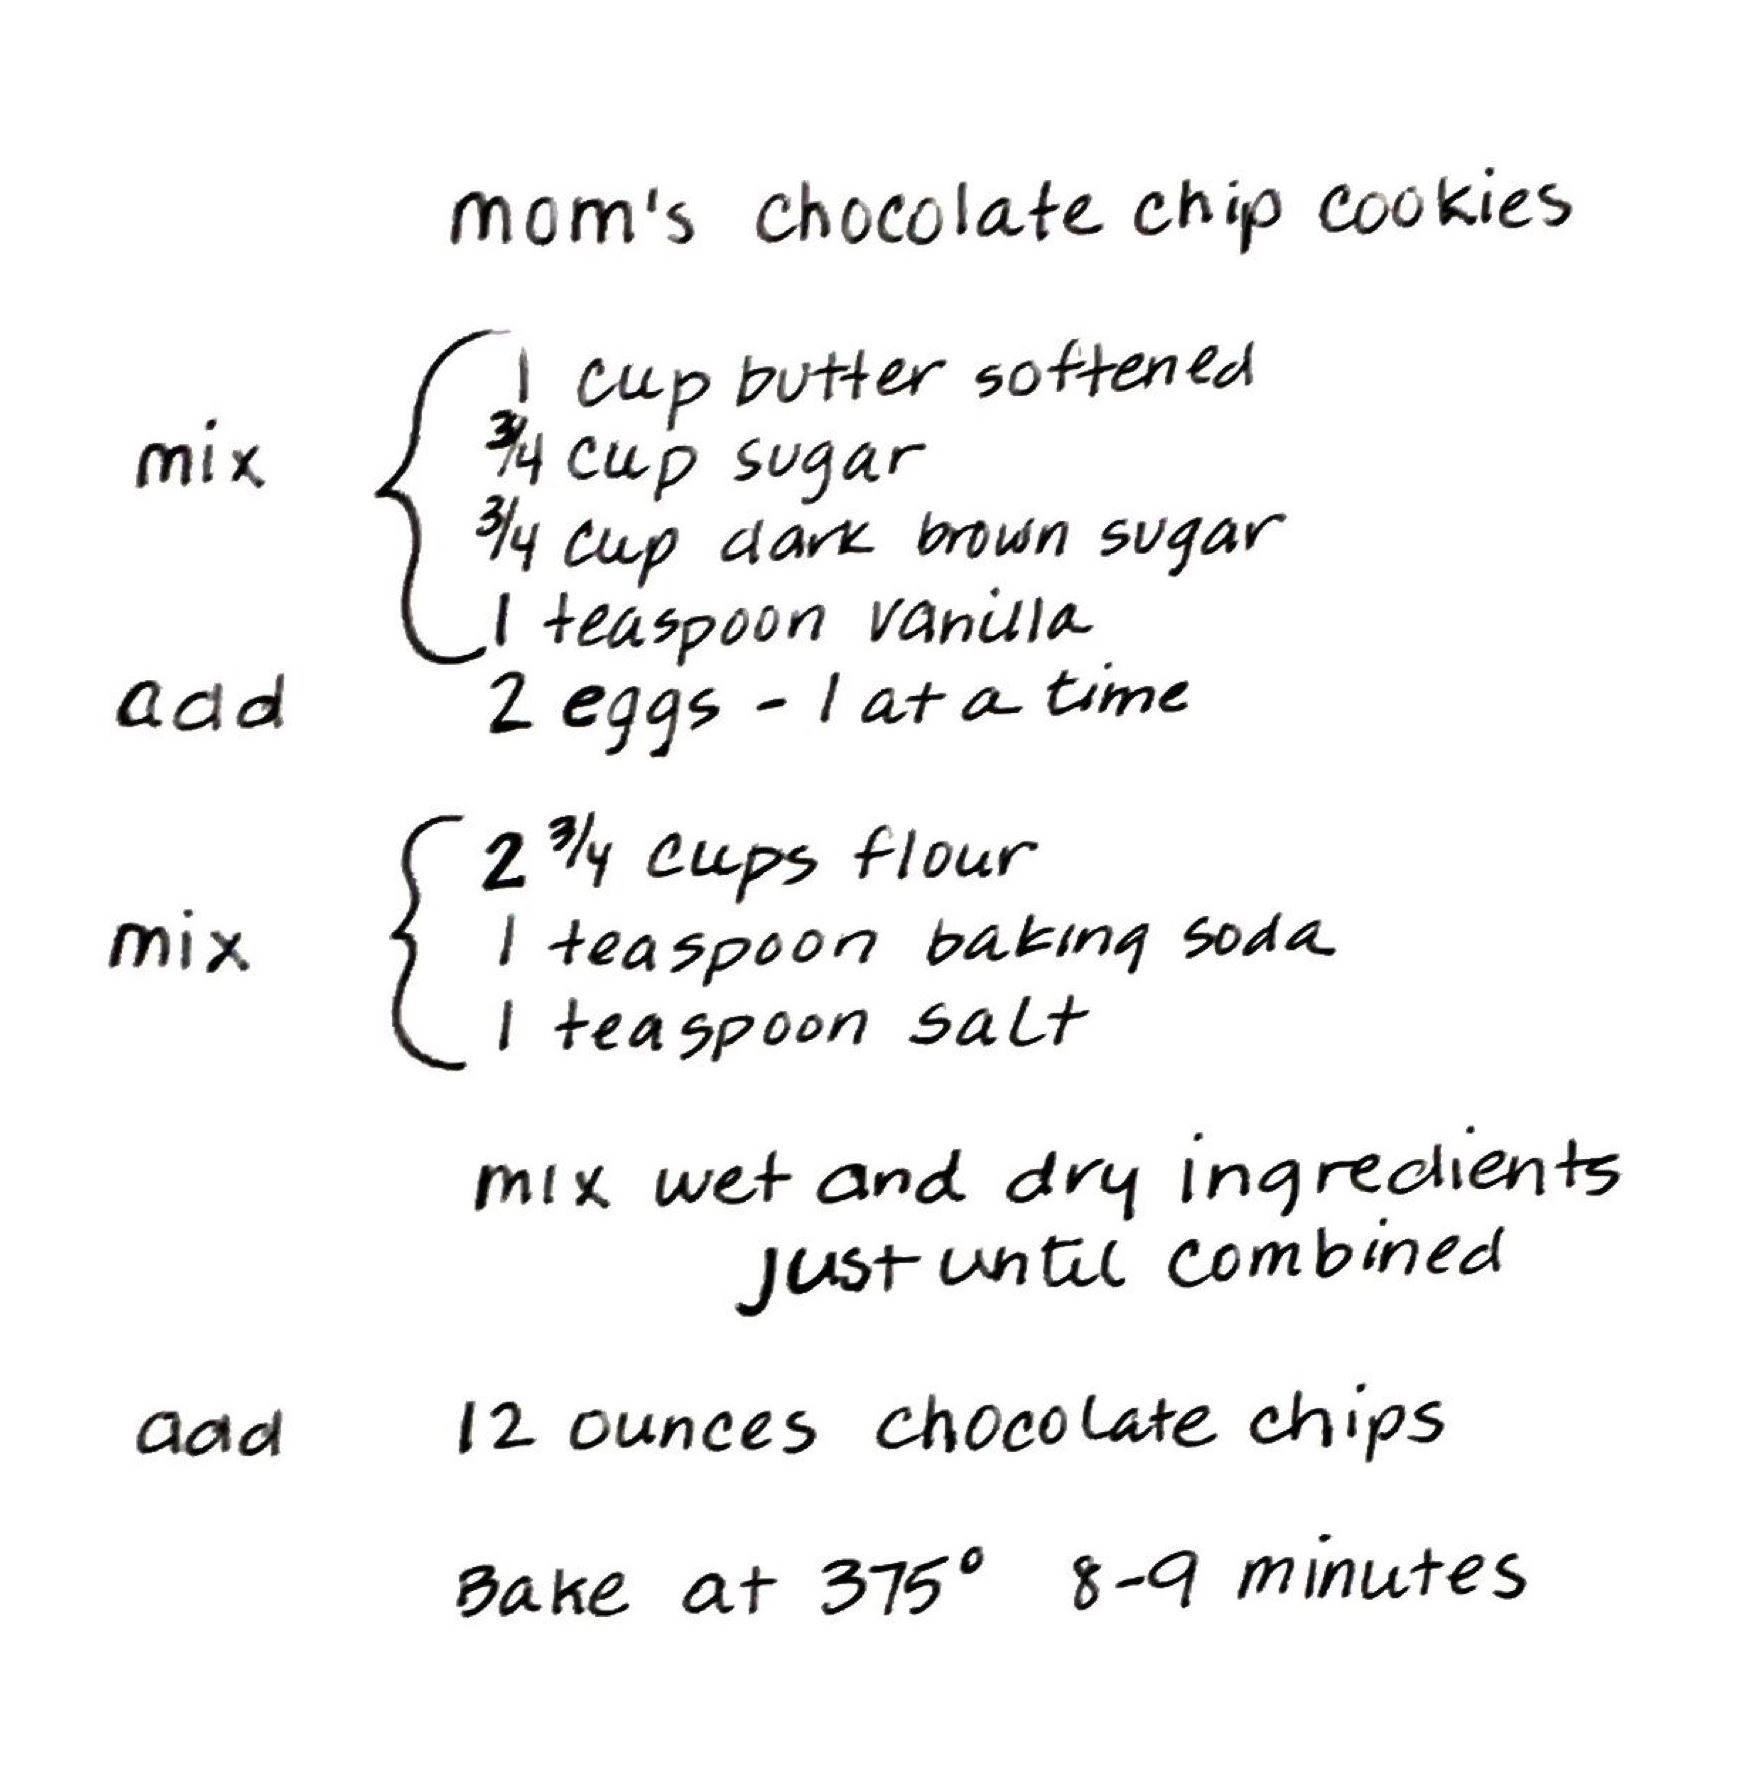 mom's chocolate chip cookies
1 cup butter softened
mix 3/4 cup sugar
3/4 cup dark brown sugar
1 teaspoon vanilla
add 2 eggs - 1 at a time
2 3/4 cups flour
mix 1 teaspoon baking soda
1 teaspoon salt
mix wet and dry ingredients
just until combined
add 12 ounces chocolate chips
Bake at 375° 8-9 minutes